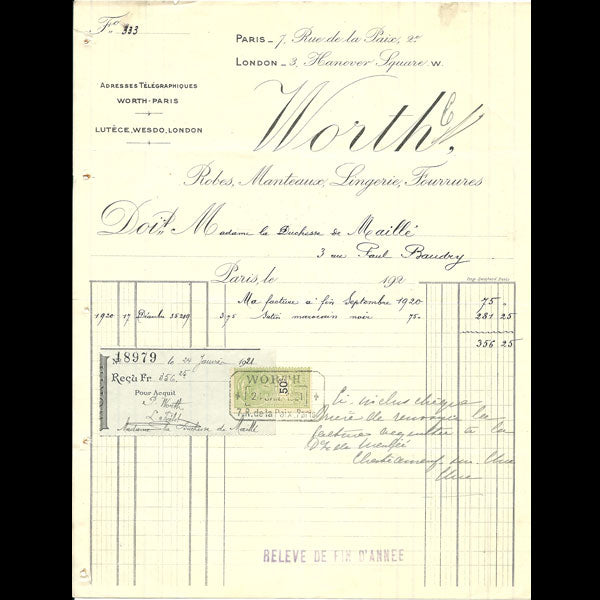 Fº 333
PARIS_ 7, Rue de la Paix, 2e
LONDON_ 3, Hanover Square. W.
ADRESSES TÉLÉGRAPHIQUES
WORTH-PARIS
LUTÈCE, WESDO, LONDON
Worth
Robes, Manteaux, Lingerie, Fourrures
Doit M adame la Duchesse de Maillé
3 rue Paul Baudry
Paris, le 192
Ma facture à fin Septembre 1920 75 "
1920 17 Décembre 3.75 Satin marocain noir 75._ 281 25
356 25
No 18979 le 24 Janvier 1921
Reçu Fr. 356.25
Pour Acquit
Worth
Madame la Duchesse de Maillé
WORTH
50
7, R. de la Paix, Paris
Ci-inclus chèque
Prière de renvoyer la
facture acquittée à la
Dsse de Maillé
Châteauneuf-sur-Cher
Cher
RELEVE DE FIN D'ANNEE